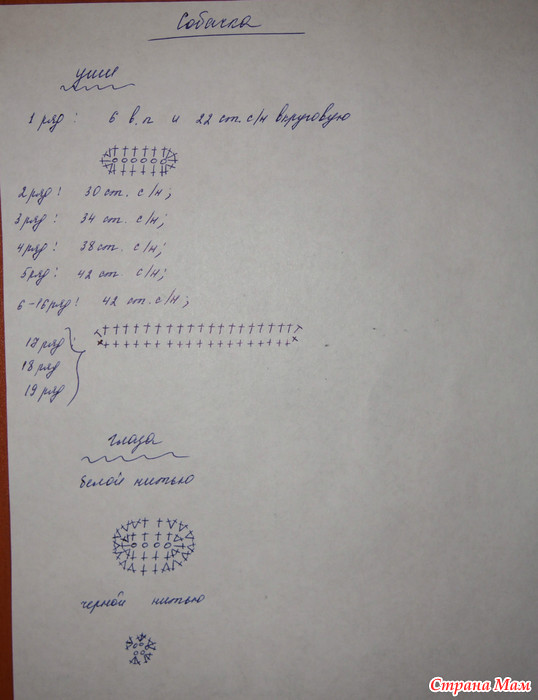 Собачка
уши
1 ряд: 6 в.п и 22 ст. с/н вкруговую
2 ряд: 30 ст. с/н;
3 ряд: 34 ст. с/н;
4 ряд: 38 ст. с/н;
5 ряд: 42 ст. с/н;
6-16 ряд: 42 ст. с/н;
17 ряд:
18 ряд
19 ряд
глаза
белой нитью
черной нитью
Страна Мам